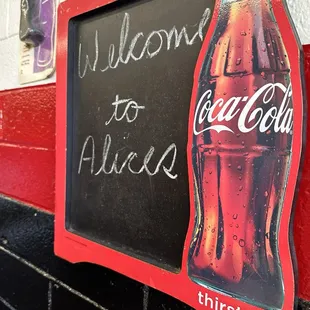 Welcome
to
Alices
Coca-Cola